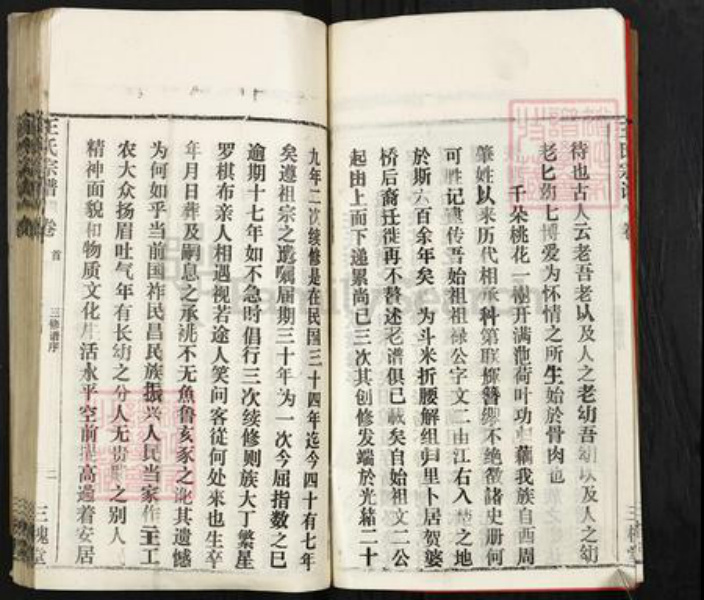 待也古人云老吾老以及人之老幼吾幼以及人之幼
老匕幼匕博爱为怀情之所生始於骨肉也
千朵桃花一樹开满池荷叶功归藕我族自西周
肇姓以来历代相承科第联
簪缨不绝
諸史册何
可胜记
传吾始祖祖禄公字文二由江右入楚之地
於斯六百余年矣 为斗米折腰解组归里卜居贺婆
桥后裔迁徙再不赘述老谱俱已載矣自始祖文二公
起由上面下递累尚已三次其创修发端於光緒二十
九年二次续修是在民国三十四年迄今四十有七年
矣遵祖宗之遺嘱届期三十年为一次今屈指数之已
逾期十七年如不急时倡行三次续修则族大丁繁星
罗棋布亲人相遇视若途人笑问客從何处来也生卒
年月日葬及嗣息之承祧不无魚鲁亥豕之
其遗憾
为何如乎当前国祚民昌民族振兴人民当家作主工
农大众扬眉吐气年有长幼之分人无贵賤之别人
精神面貌和物质文化生活水平空前提高
着安居
王氏宗谱
卷
首
三修谱序
二
三槐堂
王氏宗谱
卷
三槐堂